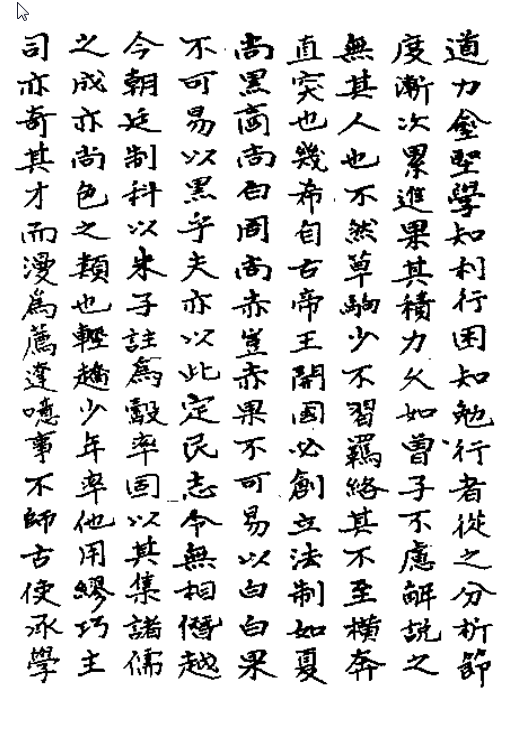 道力金堅學知利行困知勉行者從之分析節
度漸次累進果其積力久如曾子不慮解說之
無其人也不然草駒少不習羈絡其不至橫奔
直突也幾希自古帝王開國必創立法制如夏
尚黑商尚白周尚赤豈赤果不可易以白白果
不可易以黑乎夫亦以此定民志令無相僭越
今朝廷制科以朱子註為彀率固以其集諸儒
之成亦尚色之類也輕趫少年率他用繆巧主
司亦奇其才而漫為薦達噫事不師古使承學